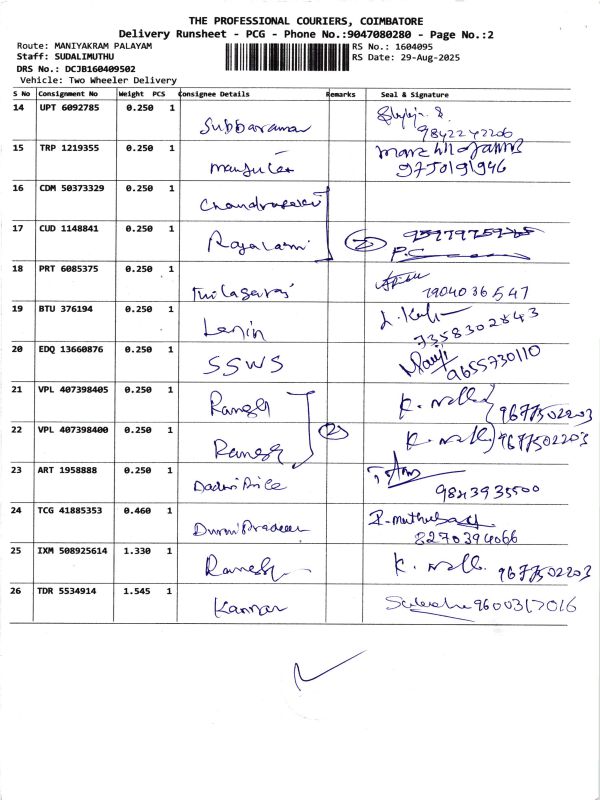 THE PROFESSIONAL COURIERS, COIMBATORE
Delivery Runsheet - PCG - Phone No.:9047080280 - Page No.:2
Route: MANIYAKRAM PALAYAM RS No.: 1604095
Staff: SUDALIMUTHU RS Date: 29-Aug-2025
DRS No.: DCJB160409502
Vehicle: Two Wheeler Delivery
S No Consignment No Weight PCS Consignee Details Remarks Seal & Signature
14 UPT 6092785 0.250 1 Subbaraman
9842242206
15 TRP 1219355 0.250 1
9750191946
16 CDM 50373329 0.250 1
17 CUD 1148841 0.250 1 Rajalaxmi 2
P.C
18 PRT 6085375 0.250 1
7904036547
19 BTU 376194 0.250 1 Lenin
7358302843
20 EDQ 13660876 0.250 1 SSWS
9655730110
21 VPL 407398405 0.250 1 Ramesh 9677502203
22 VPL 407398400 0.250 1 Ramesh 2 9677502203
23 ART 1958888 0.250 1
9843935500
24 TCG 41885353 0.460 1
8270394066
25 IXM 508925614 1.330 1 Ramesh 9677502203
26 TDR 5534914 1.545 1 Kannan 9600317016